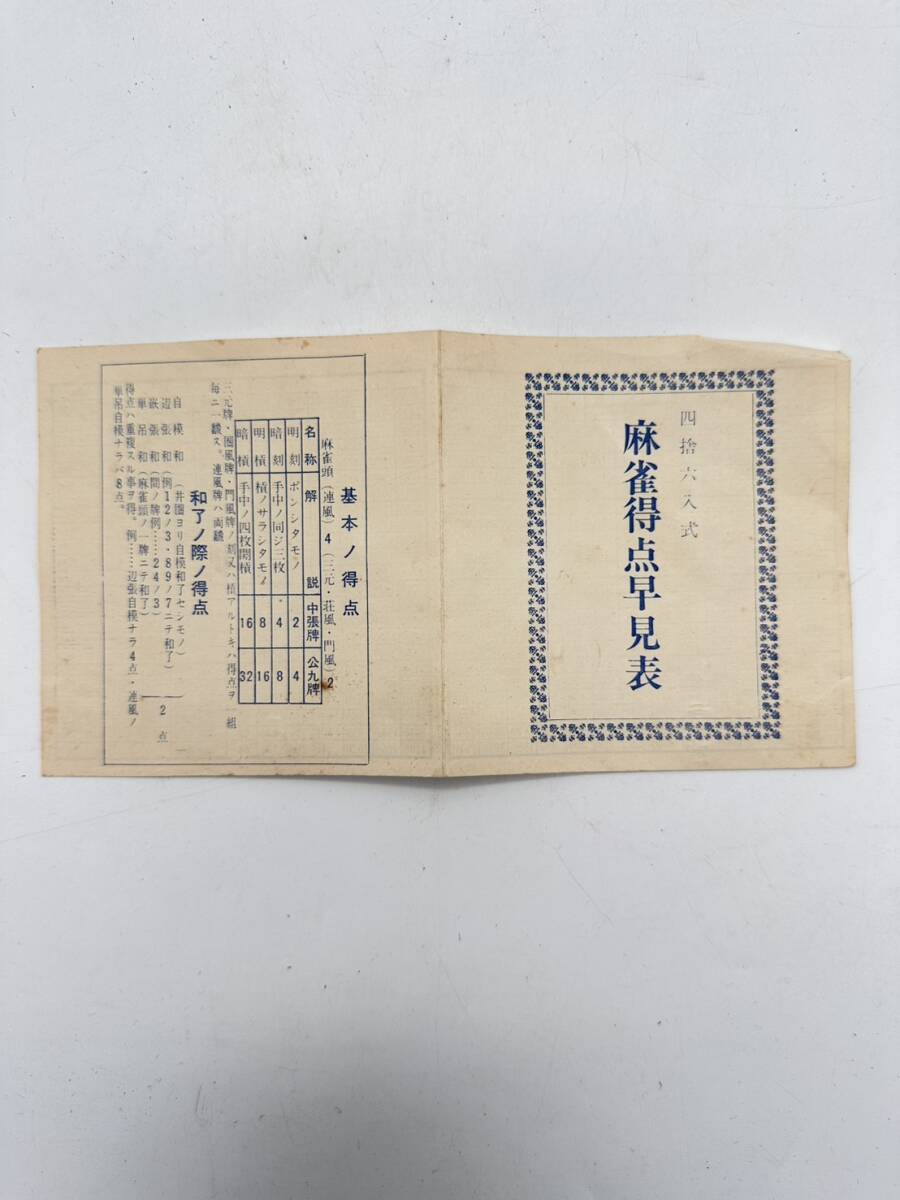 四捨六入式
麻雀得点早見表
基本ノ得点
麻雀頭(連風)4(三元・荘風・門風)2
名称 解説 中張牌 公九牌
明刻 ポンシタモノ 2 4
暗刻 手中ノ同ジ三枚 4 8
明槓 槓ノサラシタモノ 8 16
暗槓 手中ノ四枚開槓 16 32
三元牌・圏風牌・門風牌ノ刻又ハ槓アルトキハ得点ヲ一組
毎ニ一飜ス。連風牌ハ両飜
和了ノ際ノ得点
自模和(井圏ヨリ自模和了セシモノ)
辺張和(例12ノ3・89ノ7ニテ和了)
嵌張和(間ノ牌例……24ノ3)
単吊和(麻雀頭ノ一牌ニテ和了)
2点
得点ハ重複スル事ヲ得。例……辺張自模ナラ4点・連風ノ
単吊自模ナラバ8点。